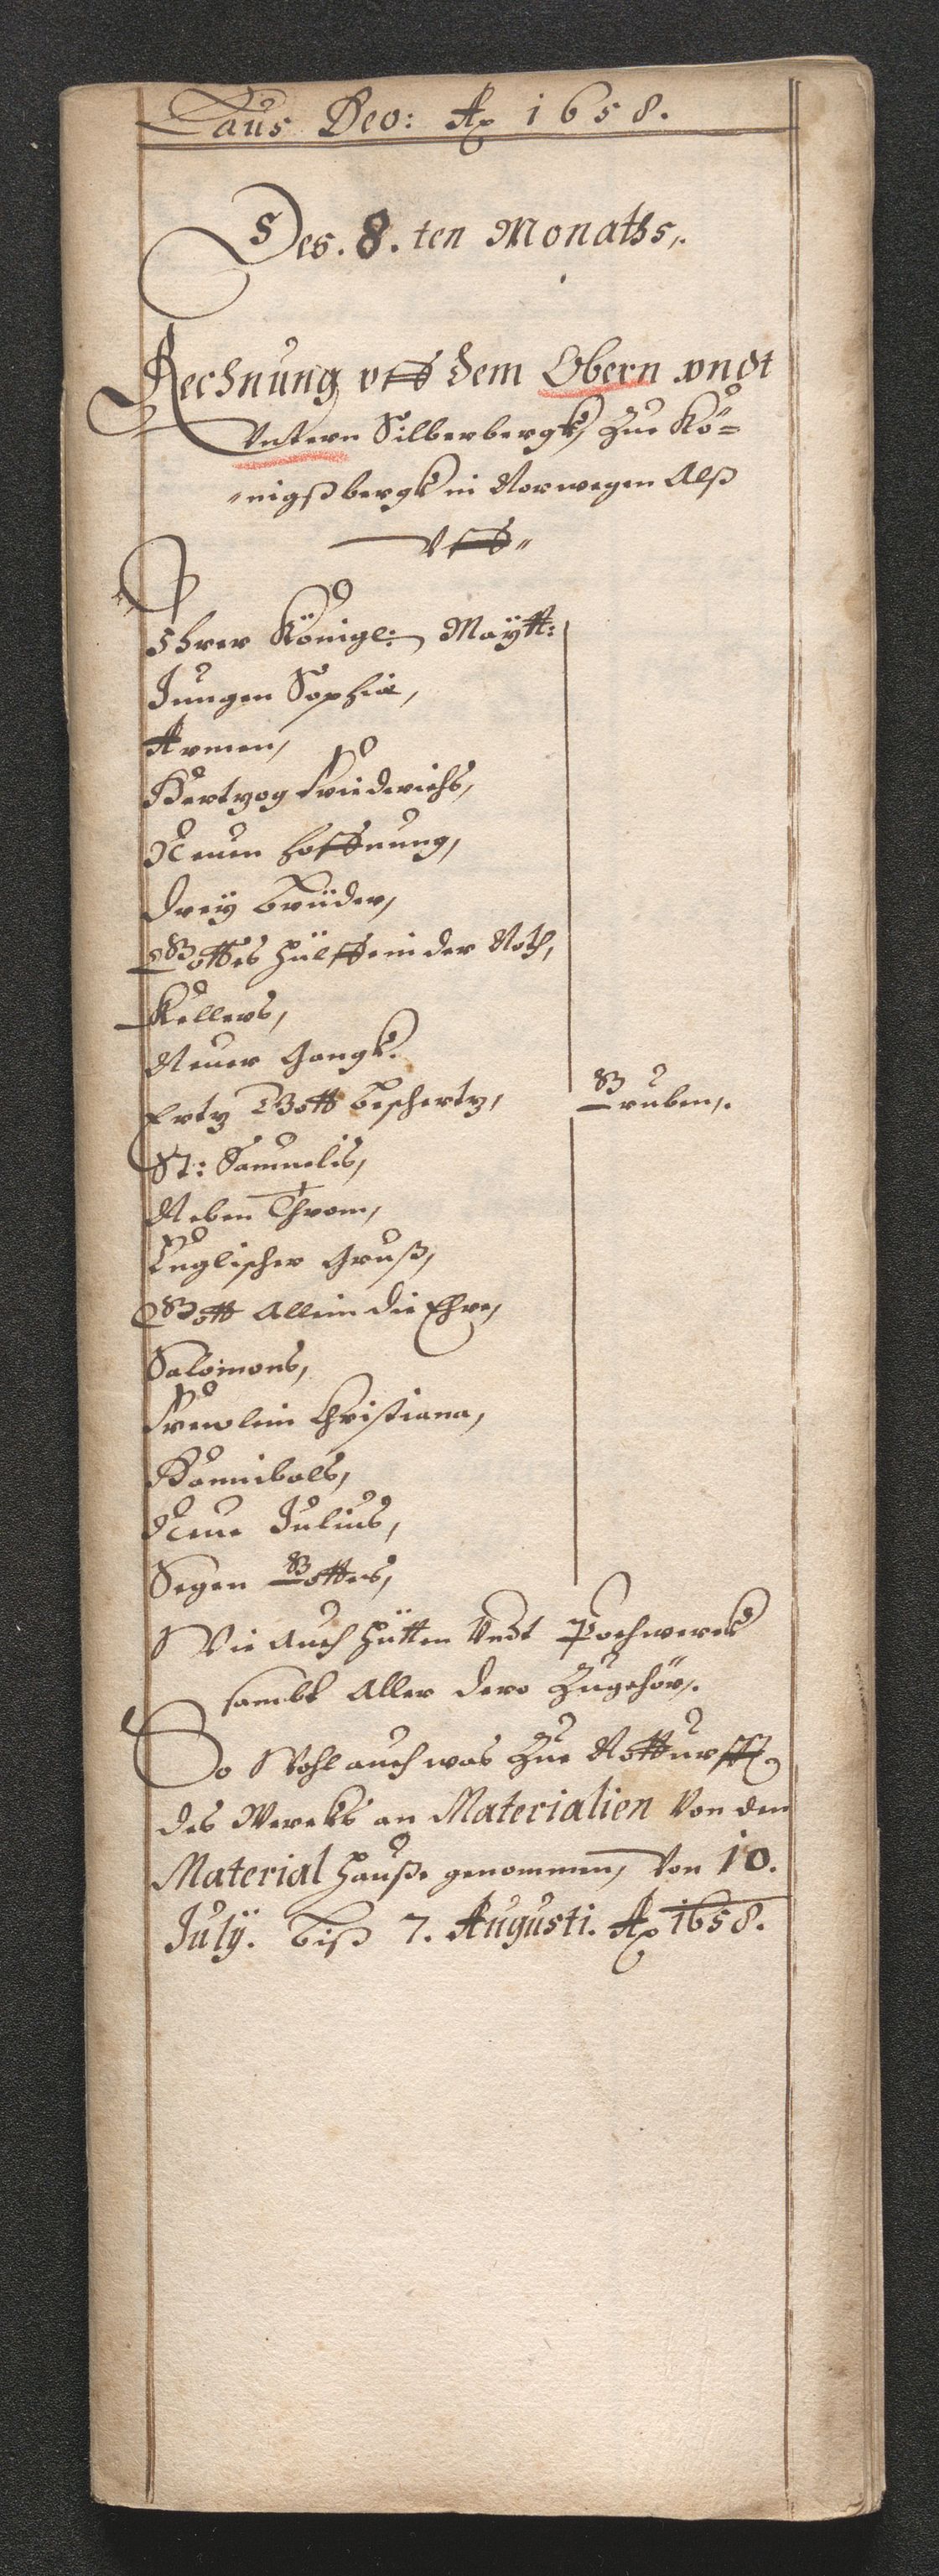 Laus Deo: Ao 1658.
Des. 8. ten Monaths,.
Rechnung vff dem Obern vndt
Vntern Silberbergk, Zue Kö=
"nigßbergk in Norwegen Alß
Vff"
Ihrer Königl: Maÿtt:
Jungen Sophia,
Armen,
Hertzog Friederichs,
Neuen hoffnung,
Dreÿ brüder,
Gottes hülffe in der Noth,
Kellers,
Neuer Gangk.
Ertz Gott beschertz,
Gruben,.
St: Samuelis,
Neben Throm,
Englischer Gruß,
Gott Allein die Ehre,
Salomons,
Frewlein Christiana,
Hannibals,
Neue Julius,
Segen Gottes,
Wie Auch hütten Vndt Pochwerck
sambt Aller dero Zugehör,.
So Wohl auch was Zue Notturfft
des Wercks an Materialien Von dem
Material Hauße genommen, Von 10.
Julÿ. biß 7. Augusti. Ao 1658.